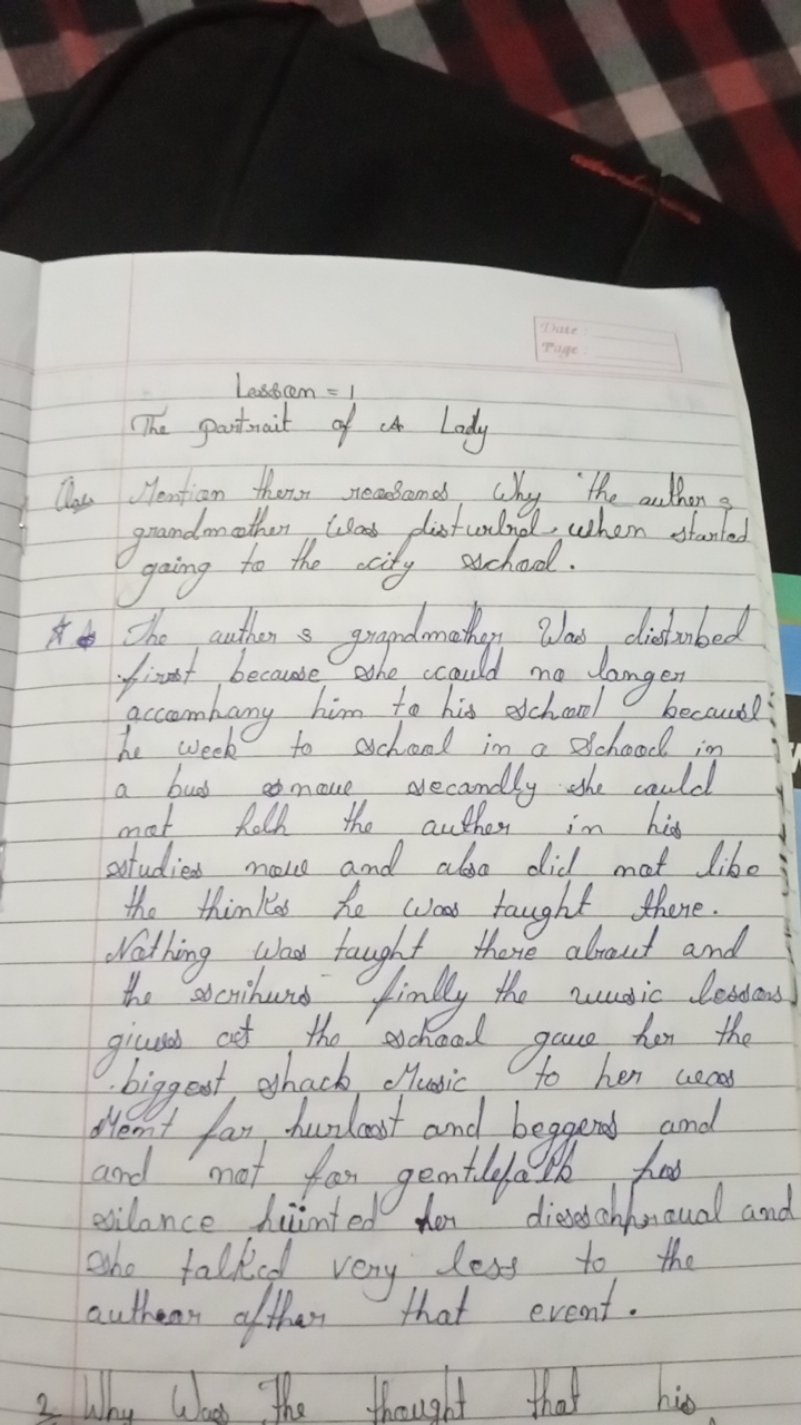 Date :
Page :
Lesson = 1
The partrait of A Lady
Mention there reasons Why the author s
grandmother Was disturbed, when started
going to the city school.
The author s grandmother Was disturbed
first because she could no langer
accomhany him to his school because
he week to school in a School in
a bus noue secandly she could
not helh the auther in his
studies noue and also did not like
the thinks he was taught there.
Nothing was taught there about and
the scrihurs finlly the music lessons
giues at the school gaue her the
biggest shack Music to her was
Ment far hurlost and beggers and
and not far gentlefalk has
silance huinted her diseschhraual and
she talked very less to the
authear afther that event.
2. Why Was The thaught that his